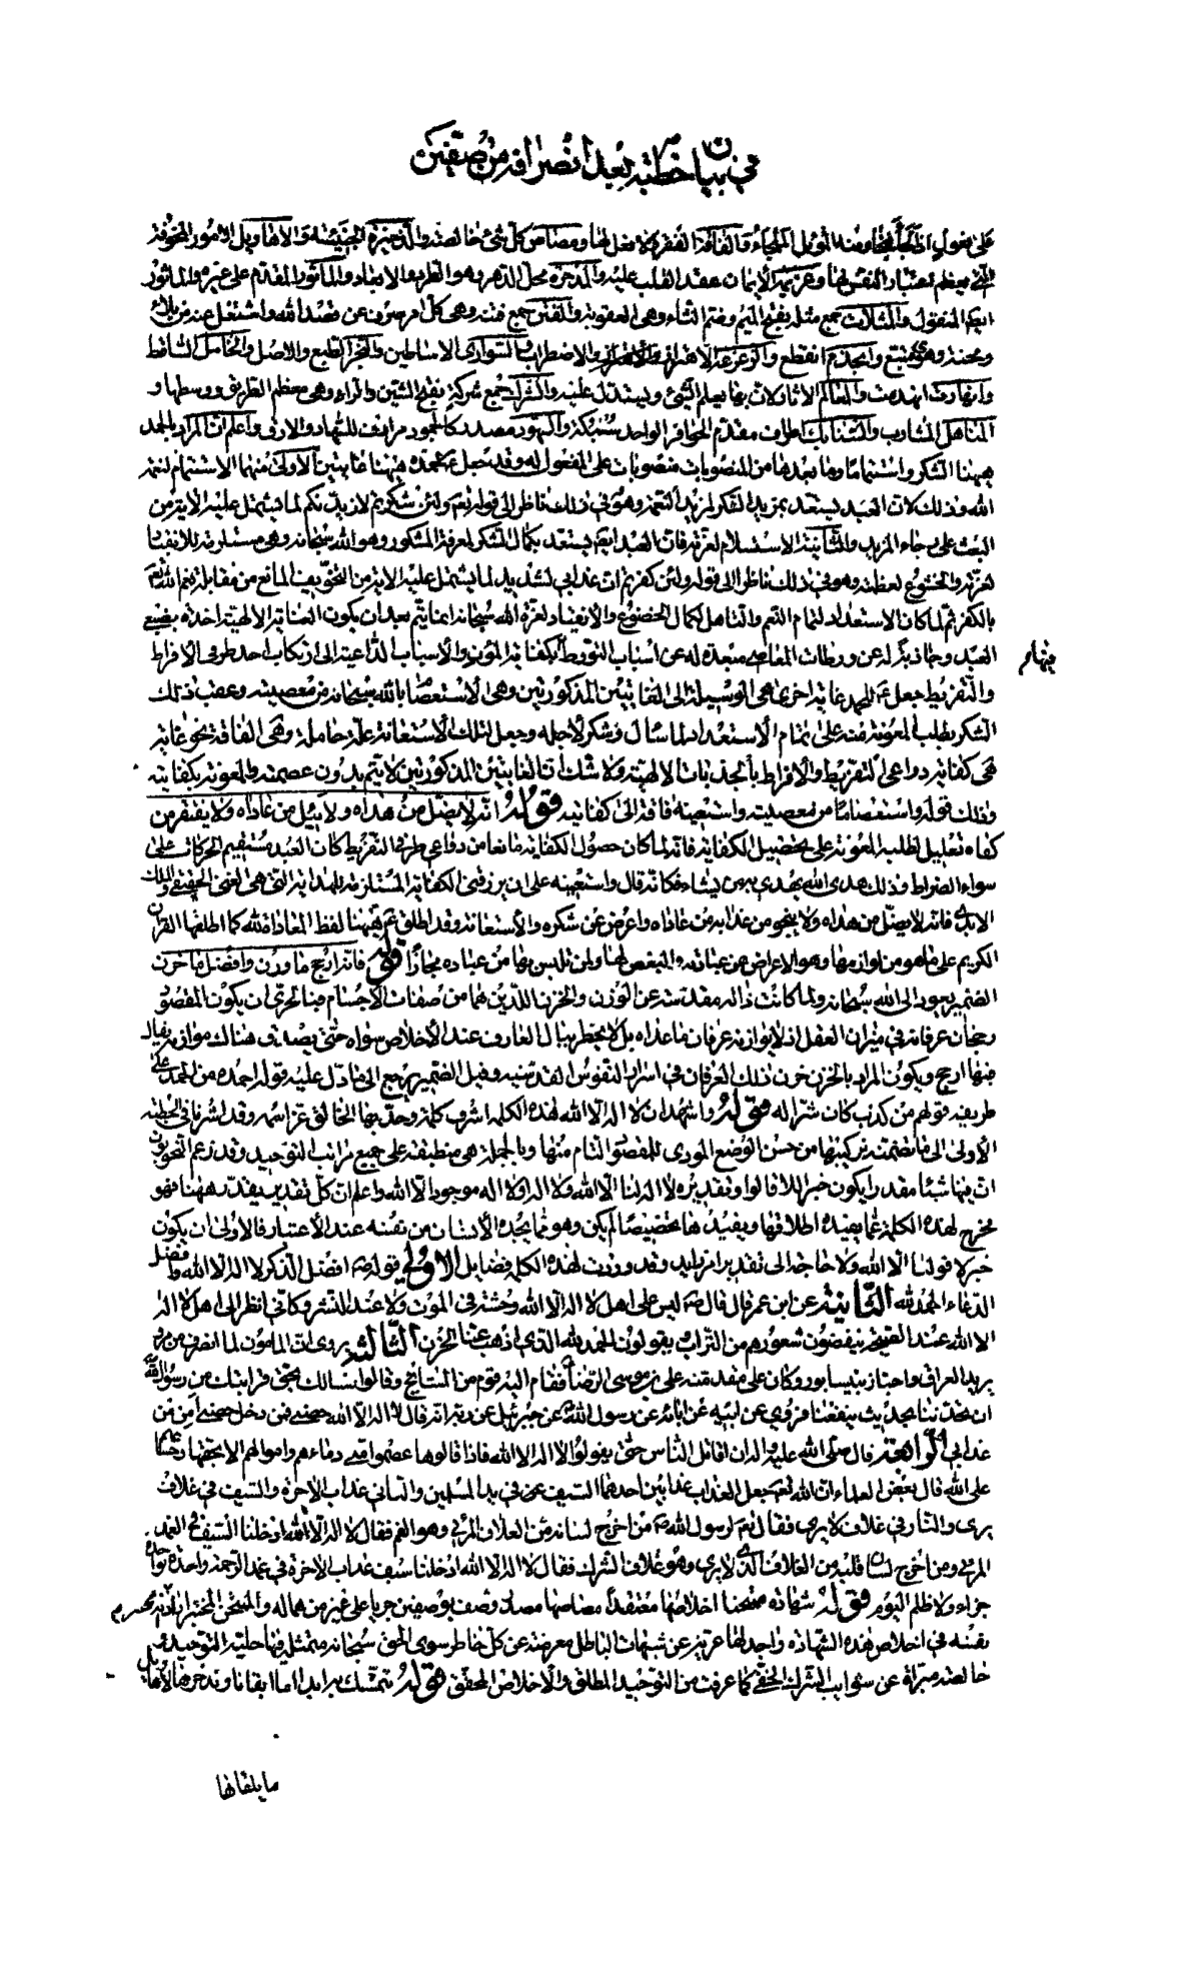 في بيان خطبته بعد انصرافه من صفين
على يفعول اذا لجأ اليها ومنه الموئل الملجاء والفاقة الفقر ولا فعل لها ومصاص كل شئ خالصه والذخيرة الخبيئة والاهاويل الامور المخوفة
التى يعظم اعتبار النفس لها وعزيمة الايمان عقد القلب عليه والمدحرة محل الدحر وهو الطرد والابعاد والماثور المقدم على غيره والماثور
ايضا المنقول والمثلات جمع مثله بفتح الميم وضم الثاء وهى العقوبة والفتن جمع فتنة وهى كل امر صرف عن قصد الله واشتغل عنه من بلاء
ومحنة وهوى متبع وانجذم انقطع والزعزعة الاضطراب والسوارى الاساطين والنجر الطبع والاصل والخامل الساقط
وانهارت انهدمت والمعالم الاثار لان بها يعلم الشئ ويستدل عليه والشرك جمع شركة بفتح الشين والراء وهى معظم الطريق ووسطها و
المناهل المشارب والسنابك اطراف مقدم الحوافر الواحد سنبك والسهود مصدر كالجمود مرادف للسهاد والارق واعلم ان المراد بالحمد
ههنا الشكر واستتماما وما بعدها من المنصوبات منصوبات على المفعول له وقد جعل ع لحمده ههنا غايتين الاولى منهما الاستتمام لنعمة
الله وذلك لان العبد يستعد بمزيد الشكر لمزيد النعمة وهو في ذلك ناظر الى قوله تعم ولئن شكرتم لازيدنكم لما يشتمل عليه الاية من
البعث على رجاء المزيد والثانية الاستسلام لعزته فان العبد ايضا يستعد بكمال الشكر لمعرفة المشكور وهو الله سبحانه وهى مستلزمة للانقياد
لعزته والخشوع لعظمته وهو في ذلك ناظر الى قوله ولئن كفرتم ان عذابى لشديد لما يشتمل عليه الاية من التخويف المانع من مقابلة نعم الله تعم
بالكفر ثم لما كان الاستعداد لتمام النعم والتاهل لكمال الخضوع والانقياد لعزة الله سبحانه انما يتم بعد ان يكون العناية الالهية اخذة بضبع
العبد وجاذبة له عن ورطات المعاصى مبعدة له عن اسباب التورط فيها بكفاية المؤن والاسباب الداعية الى ارتكاب احد طرفى الافراط
والتفريط جعل ع للحمد غاية اخرى هى الوسيلة الى الغايتين المذكورتين وهى الاستعصام بالله سبحانه من معصيته وعقب ذلك
الشكر بطلب المعونة منه على تمام الاستعداد لما سال وشكر لاجله وجعل لتلك الاستعانة علة حاملة وهى الفاقة نحو غاية
هى كفاية دواعى التفريط والافراط بالجذبات الالهية ولا شك ان الغايتين المذكورتين لا يتم بدون عصمته والمعونة بكفايته
وذلك قوله واستعصاما من معصيته واستعينه فاقة الى كفايته قوله انه لا يضل من هداه ولا يئل من عاداه ولا يفتقر من
كفاه تعليل لطلبه المعونة على تحصيل الكفاية فانه لما كان حصول الكفاية مانعا من دواعى طرفى التفريط كان العبد مستقيم الحركات على
سواء الصراط وذلك هدى الله يهدى به من يشاء فكانه قال واستعينه على ان يرزقنى الكفاية المستلزمة للهداية التى هى الغنى الحقيقى والملك
الابدى فانه لا يضل من هداه ولا ينجو من عذابه من عاداه واعرض عن شكره والاستعانة وقد اطلق ع ههنا لفظ المعاداة لله كما اطلقها القران
الكريم على ماهو من لوازمها وهو الاعراض عن عبادته والبغض لها ولمن تلبس بها من عباده مجازا قوله فانه ارجح ما وزن وافضل ما خزن
الضمير يعود الى الله سبحانه ولما كانت ذاته مقدسة عن الوزن والخزن اللذين هما من صفات الاجسام فبالحرى ان يكون المقصود
رجحان عرفانه في ميزان العقل اذ لا يوازنه عرفان ماعداه بل لا يخطر ببال العارف عند الاخلاص سواه حتى يصدق هناك موازنة يقال
فيها ارجح ويكون المراد بالخزن خزن ذلك العرفان في اسرار النفوس القدسية وقيل الضمير يرجع الى ما دل عليه قوله احمده من الحمد على
طريقة قولهم من كذب كان شرا له قوله واشهد ان لا اله الا الله هذه الكلمة اشرف كلمة وحد بها الخالق عز اسمه وقد اشرنا في الخطبة
الاولى الى ما تضمنته تركيبها من حسن الوضع المودى للمقصود التام منها وبالجملة هى منطبقة على جميع مراتب التوحيد وقد زعم النحويون
ان فيها شيئا مقدرا يكون خبرا للا قالوا وتقديره لا اله لنا الا الله ولا اله موجود الا الله واعلم ان كل تقدير يقدر ههنا فهو
مخرج لهذه الكلمة عما يفيده اطلاقها ويفيدها تخصيصا لم يكن وهو مما يجده الانسان من نفسه عند الاعتبار فالاولى ان يكون
خبر لا قولنا الا الله ولا حاجة الى تقدير امر زايد وقد وردت لهذه الكلمة فضايل الاولى قوله ص افضل الذكر لا اله الا الله وافضل
الدعاء الحمد لله الثانية عن ابن عمر قال قال ص ليس على اهل لا اله الا الله وحشة في الموت ولا عند النشر وكانى انظر الى اهل لا اله
الا الله عند الصيحة ينفضون شعورهم من التراب يقولون الحمد لله الذى اذهب عنا الحزن الثالثة يروى ان المامون لما انصرف من مرو
يريد العراق واجتاز بنيسابور وكان على مقدمته على بن موسى الرضا ع فقام اليه قوم من المشايخ وقالوا نسالك بحق قرابتك من رسول الله
ان تحدثنا بحديث ينفعنا فروى عن ابيه عن ابائه عن رسول الله ص عن جبرئيل عن ربه انه قال لا اله الا الله حصنى فمن دخل حصنى امن من
عذابى الرابعة قال صلى الله عليه واله امرت ان اقاتل الناس حتى يقولوا لا اله الا الله فاذا قالوها عصموا منى دماءهم واموالهم الا بحقها وحسابهم
على الله قال بعض العلماء ان الله تعم جعل العذاب عذابين احدهما السيف في يد المسلمين والثانى عذاب الاخرة والسيف في غلاف
يرى والنار في غلاف لا يرى فقال تعم لرسول الله ص من اخرج لسانه من الغلاف المرئى وهو الفم فقال لا اله الا الله ادخلنا السيف في الغمد
المرئى ومن اخرج لسان قلبه من الغلاف الذى لا يرى وهو غلاف الشرك فقال لا اله الا الله ادخلنا سيف عذاب الاخرة في غمد الرحمة واحدة بواحدة
جزاء ولا ظلم اليوم قوله شهادة ممتحنا اخلاصها معتقدا مصاصها مصدر وصف بوصفين جريا على غير من هما له والممتحن المختبر
نفسه في اخلاص هذه الشهادة واجد لها عرية عن شبهات الباطل معرضة عن كل خاطر سوى الحق سبحانه متمثل فيها حلية التوحيد و
خالصه مبراة عن شوايب الشرك الخفى كما عرفت من التوحيد المطلق والاخلاص المحقق قوله نتمسك بها ابدا ما ابقانا وندخرها لاهاويل
ما يلقانا